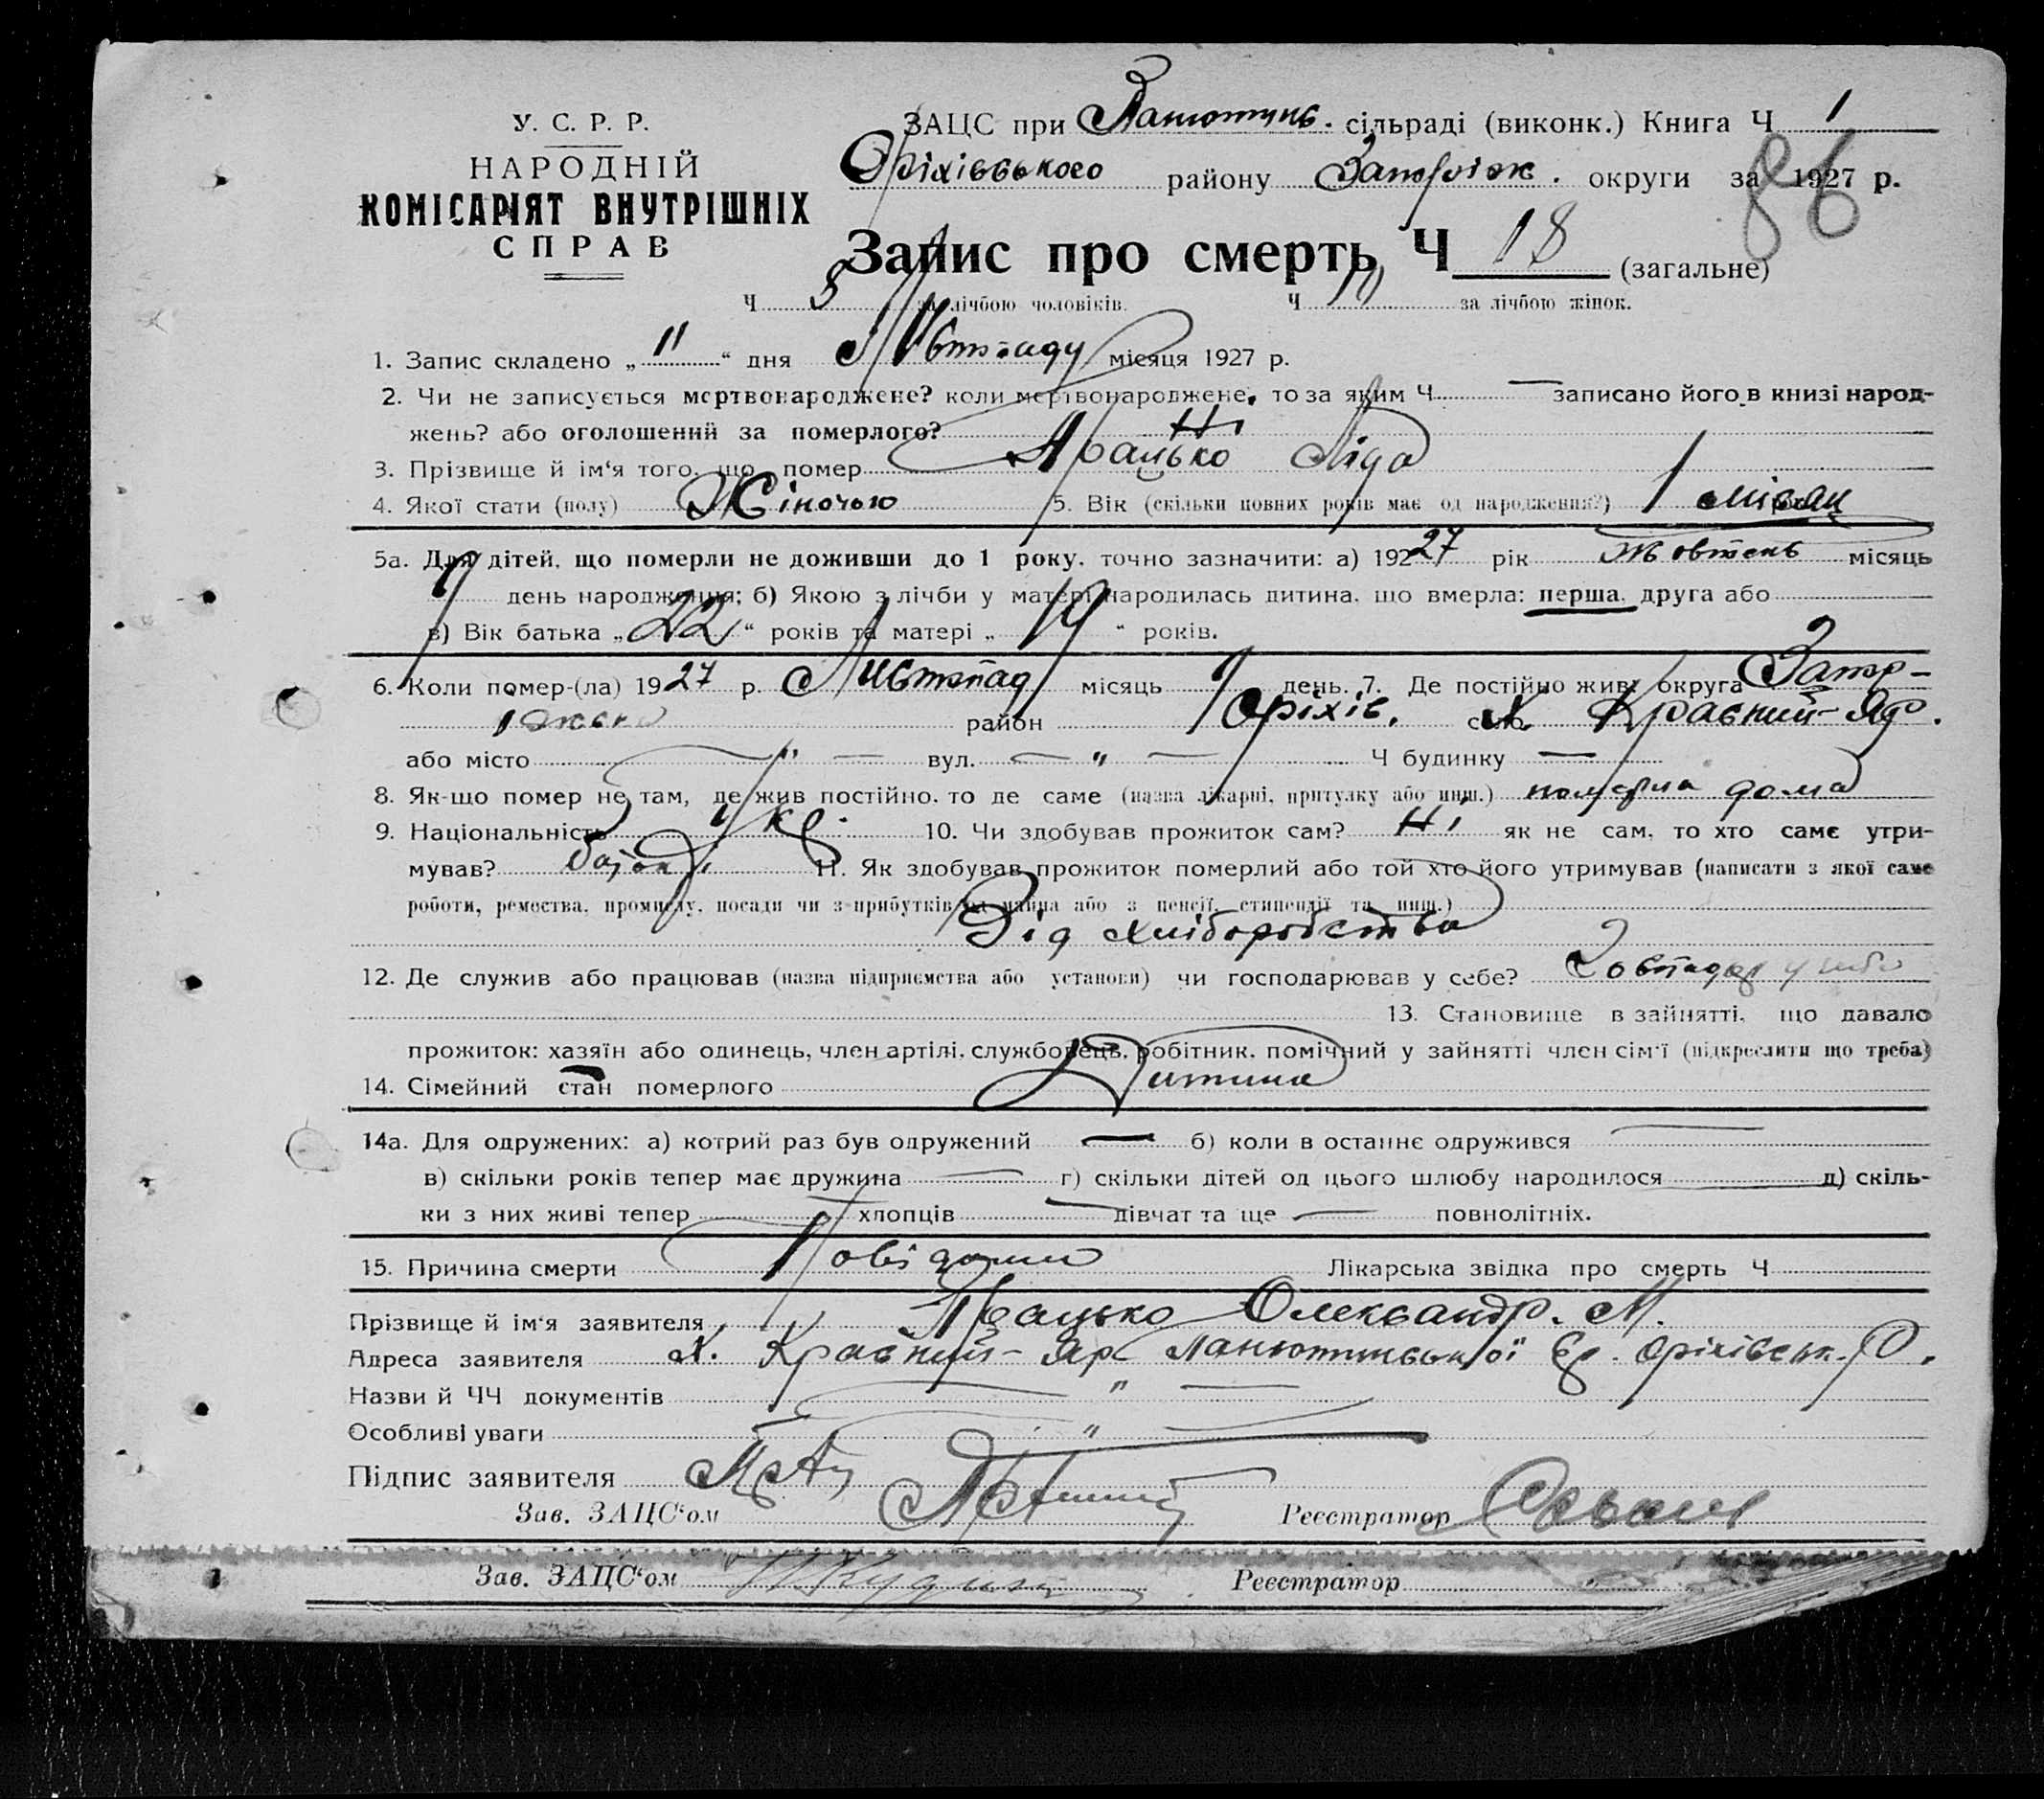 У. С. Р. Р.
НАРОДНІЙ
КОМІСАРІЯТ ВНУТРІШНІХ
СПРАВ
ЗАЦС при сільраді (виконк.) Книга Ч 1
Оріхівського району Запоріж. округи за 1927 р.
86
Запис про смерть Ч 18 (загальне)
Ч 8 за лічбою чоловіків. Ч 10 за лічбою жінок.
1. Запис складено „ 11 “ дня Листопаду місяця 1927 р.
2. Чи не записується мертвонароджене? коли мертвонароджене, то за яким Ч — записано його в книзі народ-
жень? або оголошений за померлого? Ні
3. Прізвище й ім‘я того, що помер Працько Ліда
4. Якої стати (полу) Жіночою 5. Вік (скільки повних років має од народження?) 1 місяц
5а. Для дітей, що померли не доживши до 1 року, точно зазначити: а) 192 27 рік Жовтень місяць
день народження; б) Якою з лічби у матері народилась дитина, що вмерла: перша, друга або
в) Вік батька „ 22 “ років та матері „ 19 “ років.
6. Коли помер-(ла) 19 27 р. Листопад місяць 9 день. 7. Де постійно жив: округа Запор-
іжька район Оріхів. село Х. Красний-Яр.
або місто — " — вул. — " — Ч будинку —
8. Як-що помер не там, де жив постійно, то де саме (назва лікарні, притулку або инш.) померла дома
9. Національність Укр. 10. Чи здобував прожиток сам? Ні як не сам, то хто саме утри-
мував? 11. Як здобував прожиток померлий або той хто його утримував (написати з якої саме
роботи, ремества, промислу, посади чи з прибутків од майна або з пенсії, стипендії та инш.)
Від хліборобства
12. Де служив або працював (назва підприємства або установи) чи господарював у себе? Господар у себе
13. Становище в зайнятті, що давало
прожиток: хазяїн або одинець, член артілі, службовець, робітник, помічний у зайнятті член сім‘ї (підкреслити що треба)
14. Сімейний стан померлого Дитина
14а. Для одружених: а) котрий раз був одружений — б) коли в останнє одружився —
в) скільки років тепер має дружина — г) скільки дітей од цього шлюбу народилося — д) скіль-
ки з них живі тепер — хлопців — дівчат та ще — повнолітніх.
15. Причина смерти Лікарська звідка про смерть Ч
Прізвище й ім‘я заявителя Працько Олександр. М.
Адреса заявителя Х. Красний-Яр Оріхівськ. Р.
Назви й ЧЧ документів — " —
Особливі уваги — " —
Підпис заявителя
Зав. ЗАЦС‘ом Реєстратор
Зав. ЗАЦС‘ом Реєстратор